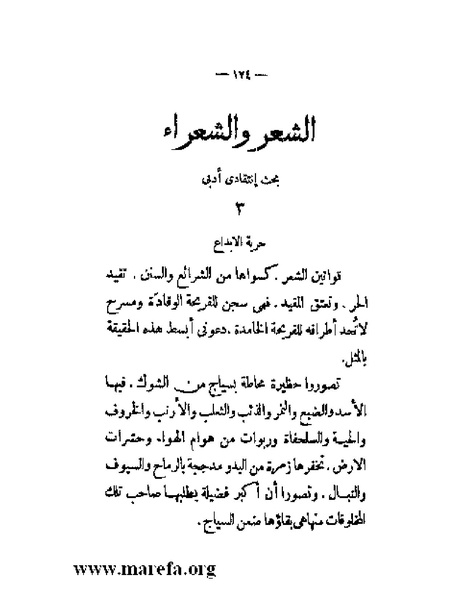 — ١٢٤ —
الشعر والشعراء
بحث إنتقادى أدبى
٣
حرية الابداع
قوانين الشعر . كسواها من الشرائع والسنن . تقيد
الحر . وتعتق المقيد . فهى سجن للقريحة الوقادة ومسرح
لا تُحد أطرافه للقريحة الخامدة . دعونى أبسط هذه الحقيقة
بالمثل .
تصوروا حظيرة محاطة بسياج من الشوك . فيها
الأسد والضبع والنمر والذئب والثعلب والأرنب والخروف
والحية والسلحفاة وربوات من هوام الهواء وحشرات
الارض . تخفرها زمرة من البدو مدججة بالرماح والسيوف
والنبال . وتصورا أن أكبر فضيلة يطلبها صاحب تلك
المخلوقات منها هى بقاؤها ضمن السياج .
www.marefa.org